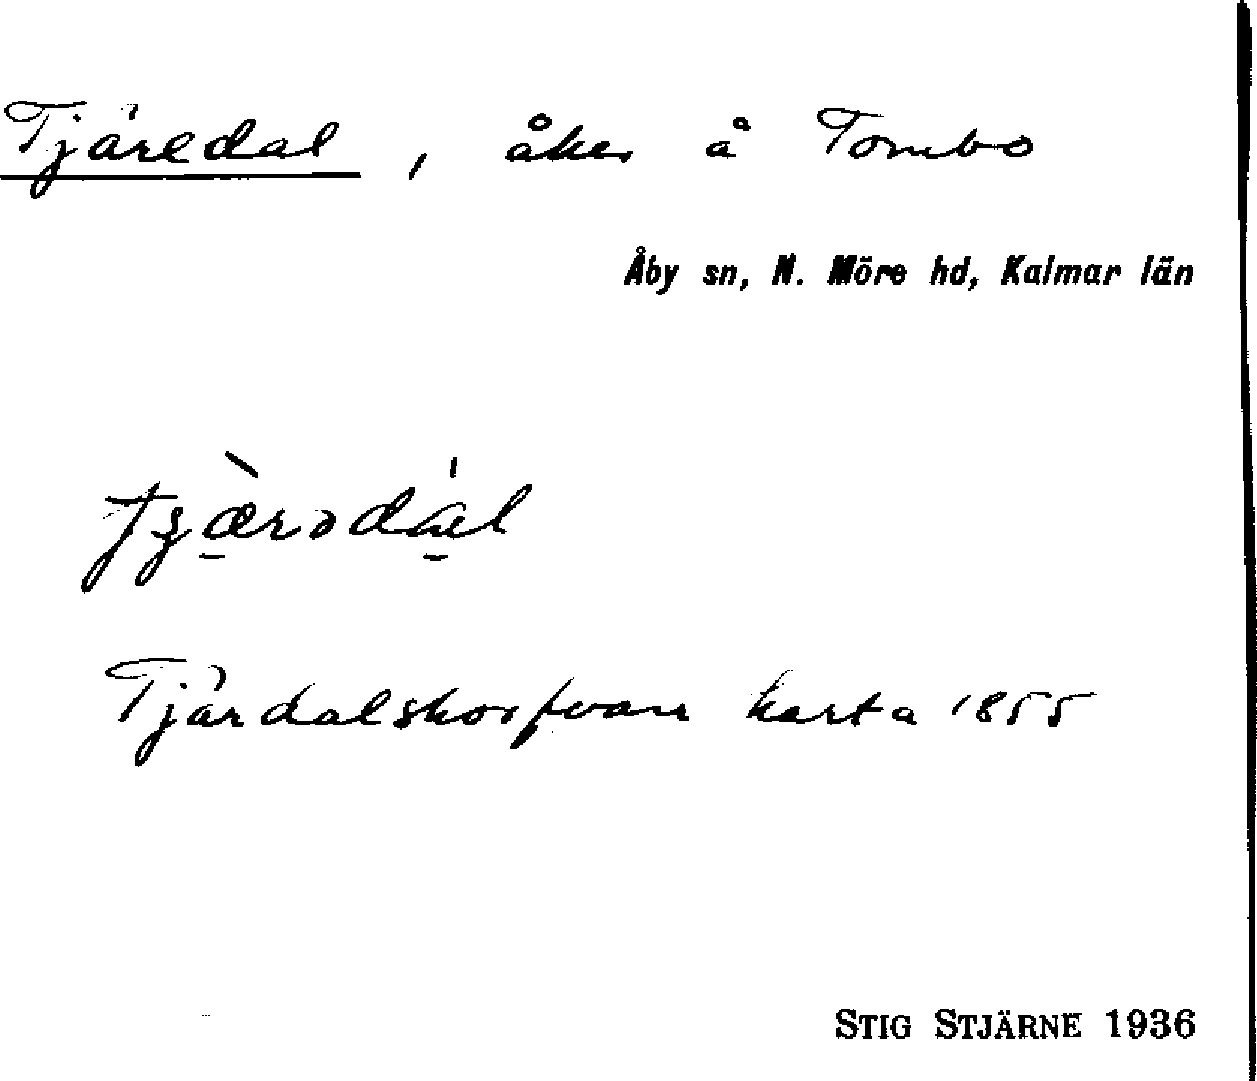 Tjäredal, åker å Tombo
Åby sn, N. Möre hd, Kalmar län
Tjärdalskorfvan karta 1855
STIG STJÄRNE 1936